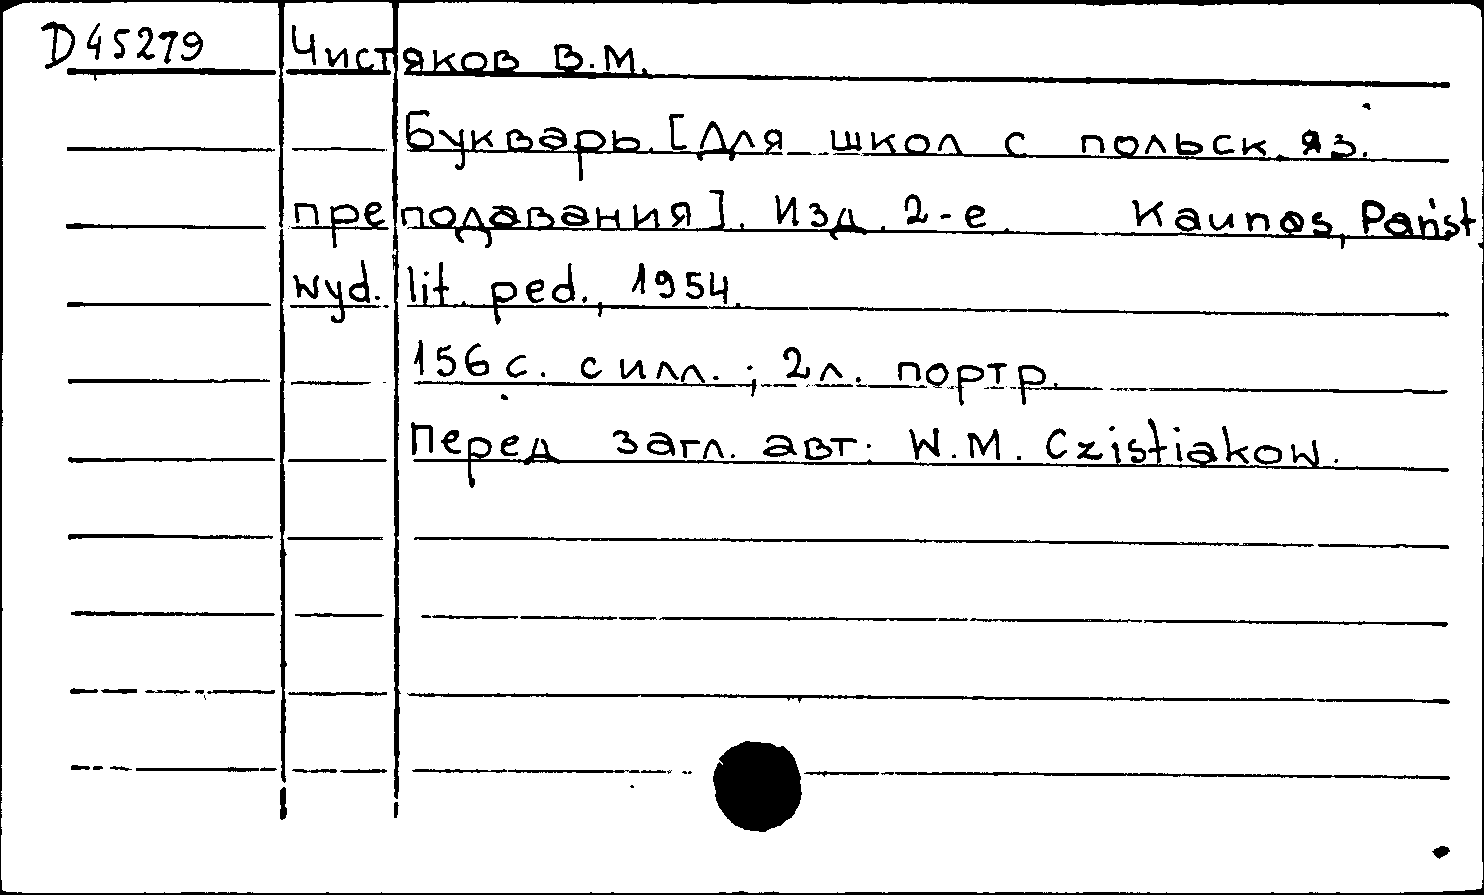 D45279 Чистяков В.М.
Букварь. [Для школ с польск. яз.
преподавания]. Изд. 2-е. Kaunas, Państ
wyd. lit. ped., 1954.
156 с. с илл.; 2л. портр.
Перед загл. авт: W.M. Czistiakow.